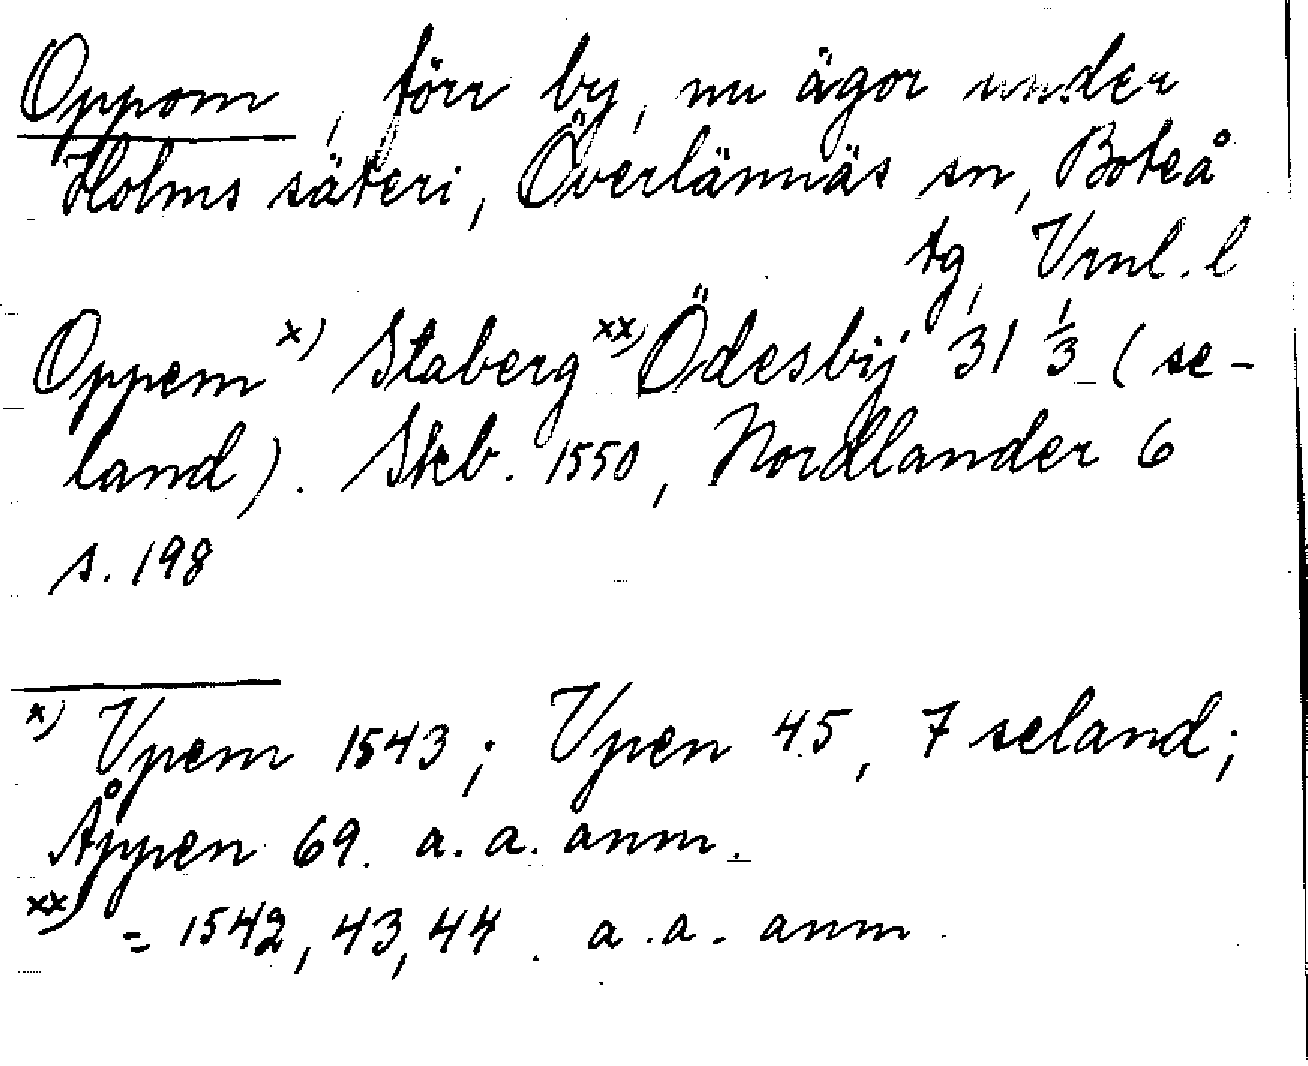 Oppom, förr by, nu ägor under
Holms säteri, Överlännäs sn, Boteå
tg, Vrnl. l
Oppem x) Staberg xx) Ödesbij 31 1/3 (se-
land). Skb. 1550, Nordlander 6
s. 198
x) Vpem 1543; Vpen 45, 7 seland;
Åppen 69. a. a. anm.
xx) = 1542, 43, 44. a. a. anm.